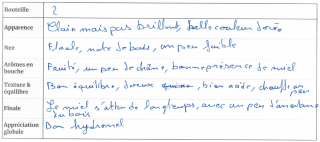 Bouteille 2
Apparence Clair mais pas brillant, belle couleur dorée
Nez Florale, note de bois, un peu faible
Arômes en bouche Fruité, un peu de chêne, bonne présence de miel
Texture & équilibre Bon équilibre, doux, bien aidé, chauffe un peu
Finale Le miel s'attend longtemps, avec un peu d'amertume du bois
Appréciation globale Bon hydromel